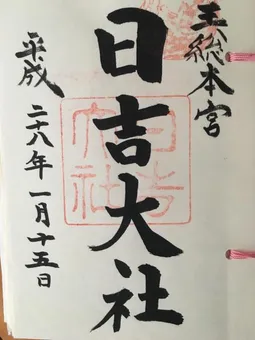 山王総本宮
日吉大社
平成二十八年一月十五日
日吉大社